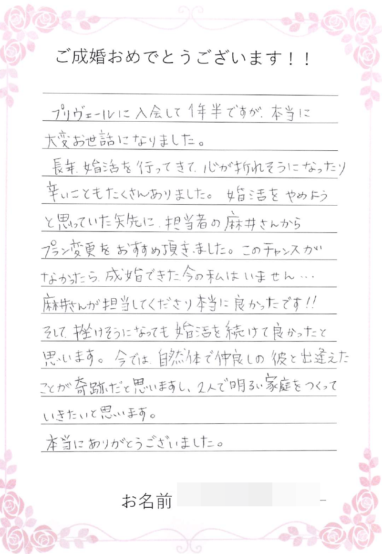 ご成婚おめでとうございます！！
プリヴェールに入会して1年半ですが、本当に
大変お世話になりました。
長年、婚活を行ってきて、心が折れそうになったり
辛いこともたくさんありました。婚活をやめよう
と思っていた矢先に、担当者の麻井さんから
プラン変更をおすすめ頂きました。このチャンスが
なかったら、成婚できた今の私はいません…
麻井さんが担当してくださり本当に良かったです!!
そして、挫けそうになっても婚活を続けて良かったと
思います。今では、自然体で仲良しの彼と出逢えた
ことが奇跡だと思いますし、2人で明るい家庭をつくって
いきたいと思います。
本当にありがとうございました。
お名前